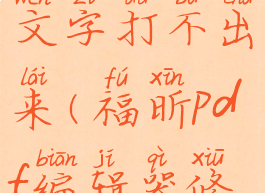 wén zì dǎ bù chū
文字打不出
lái fú xīn
来(福昕pd
biān jí qì xiū
f编辑器修